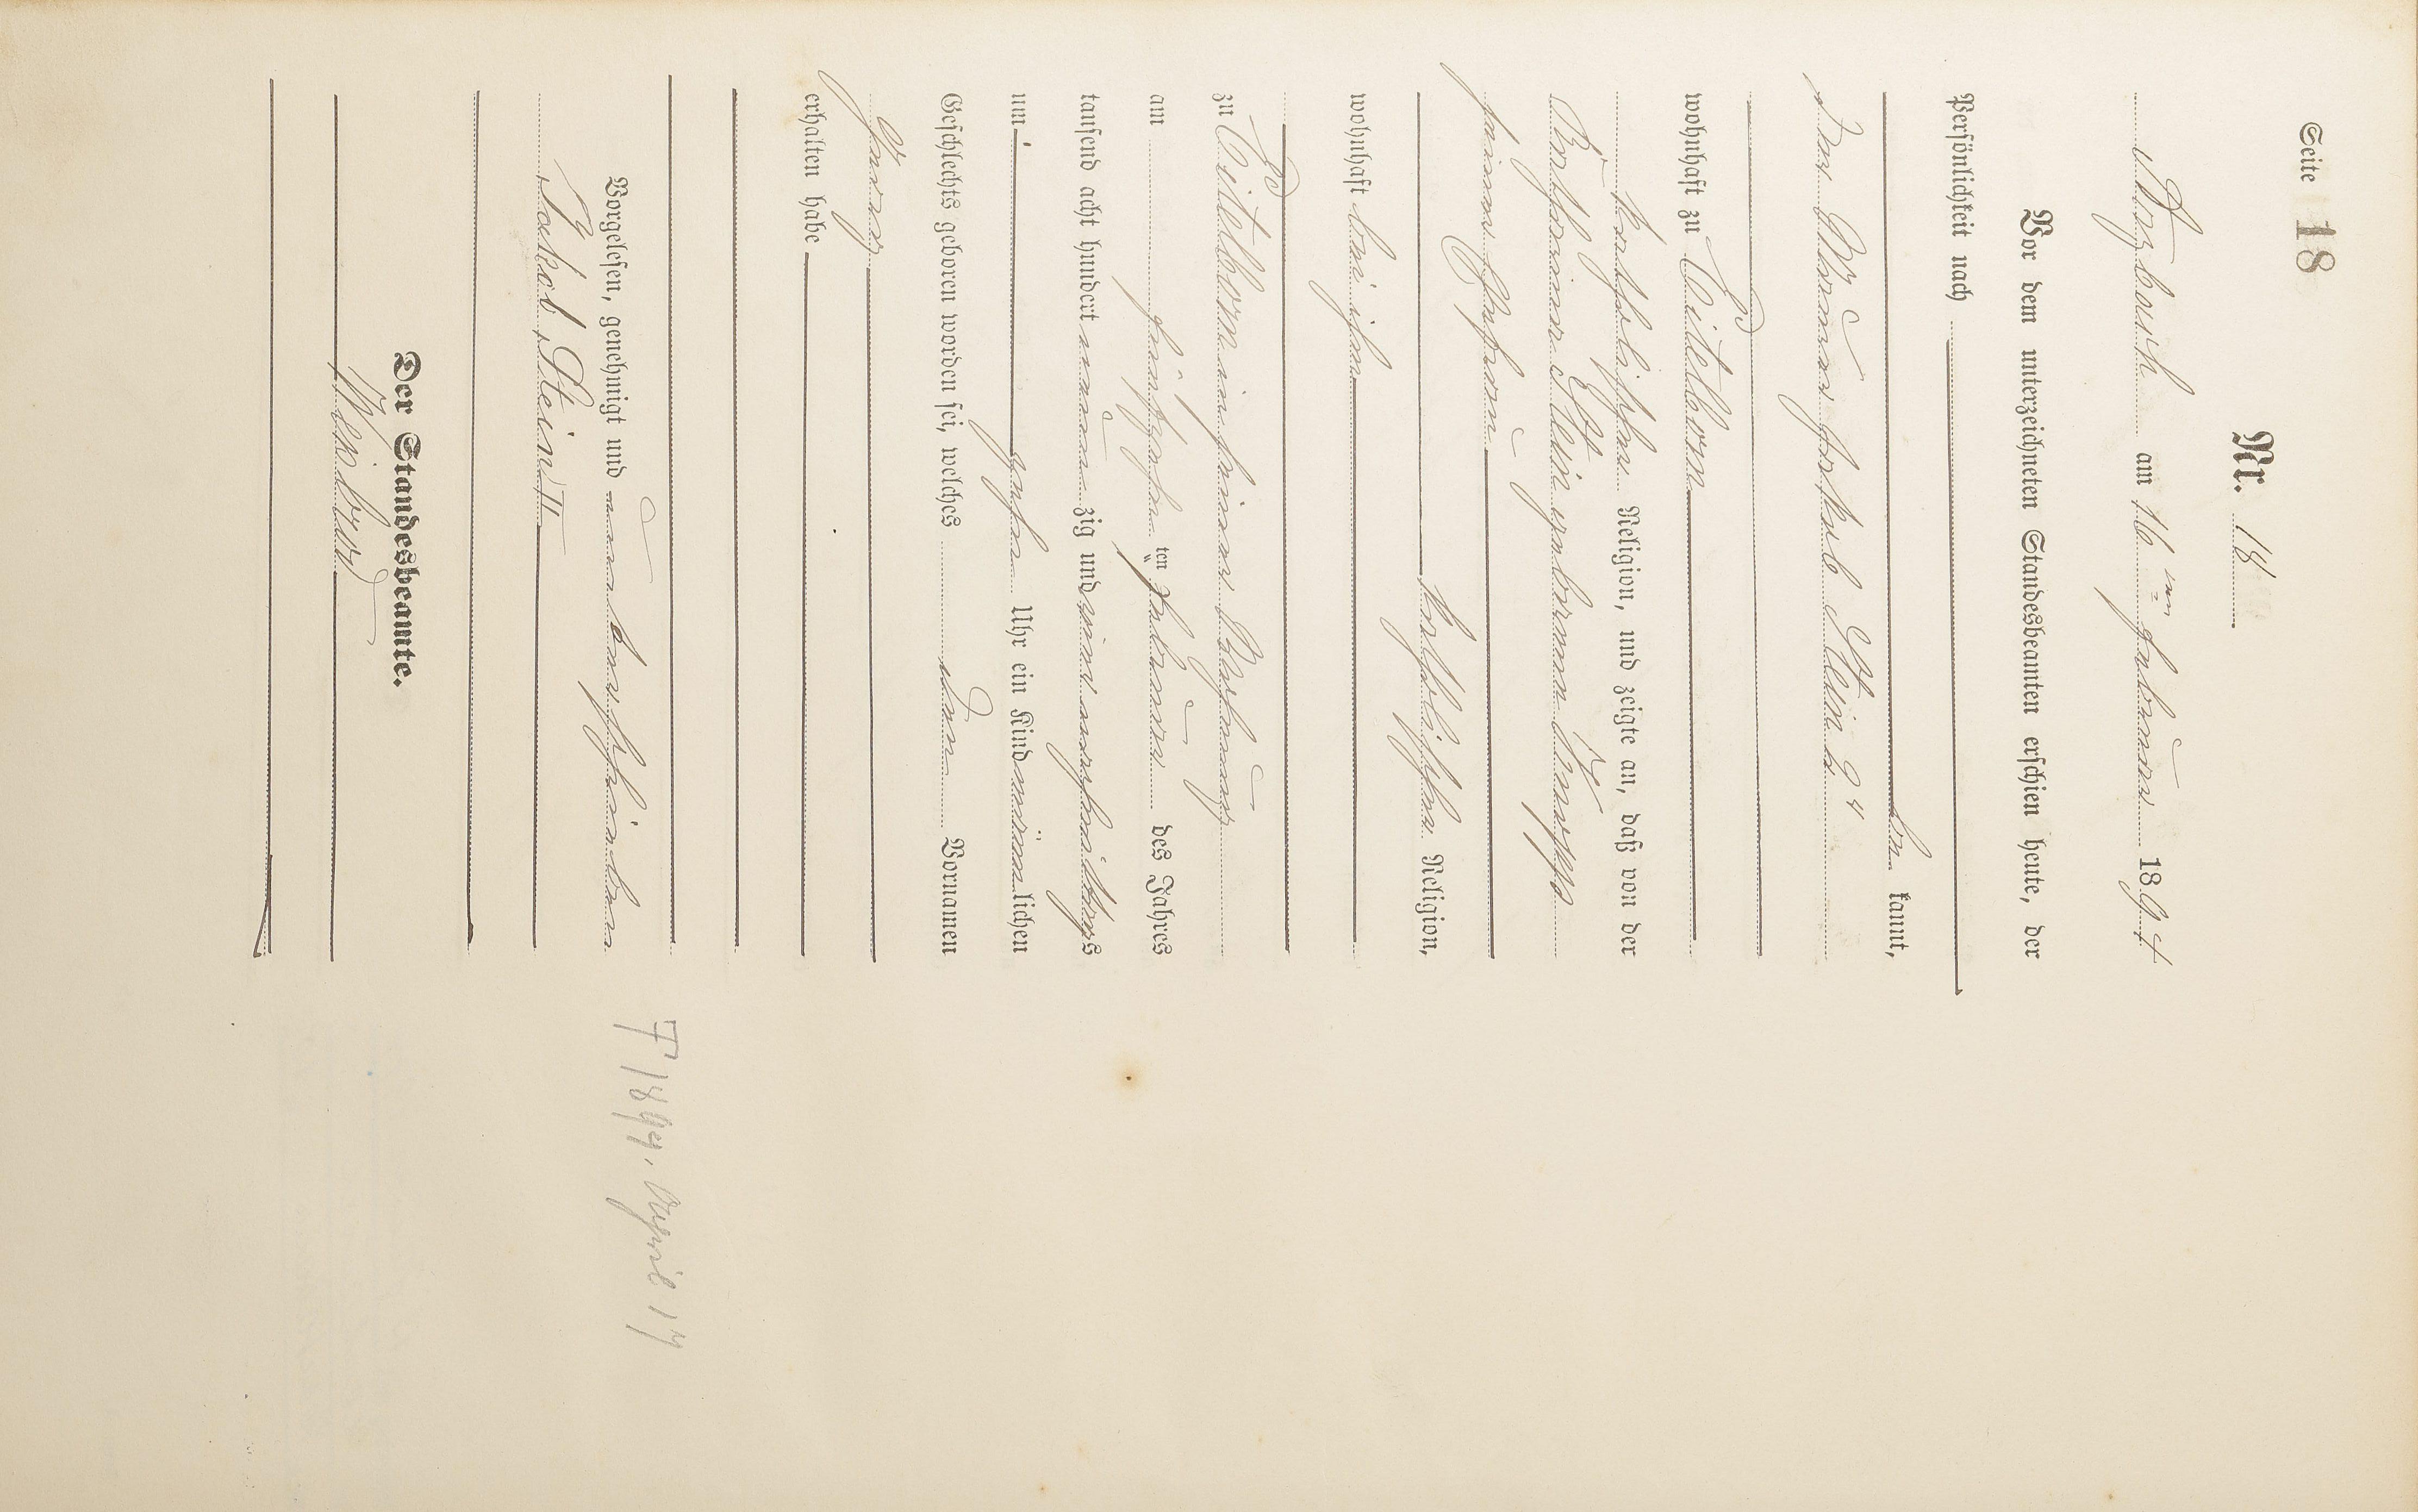 Seite 18
Nr. 18
am 16ten Februar 1894
Vor dem unterzeichneten Standesbeamten erschien heute, der
Persönlichkeit nach
be kannt,
der Maurer Jakob Klein 2r
wohnhaft zu Eitelborn
katholischer Religion, und zeigte an, daß von der
Katharina Klein geborenen Knopp
seiner Ehefrau
katholischer Religion,
wohnhaft bei ihm
zu Eitelborn in seiner Behausung
am fünfzehn ten Februar des Jahres
tausend acht hundert neun zig und vier nachmittags
um zehn Uhr ein Kind männ lichen
Geschlechts geboren worden sei, welches den Vornamen
Georg
erhalten habe
Vorgelesen, genehmigt und unterschrieben
Jakob Klein II
Der Standesbeamte.
† 1894. April 17